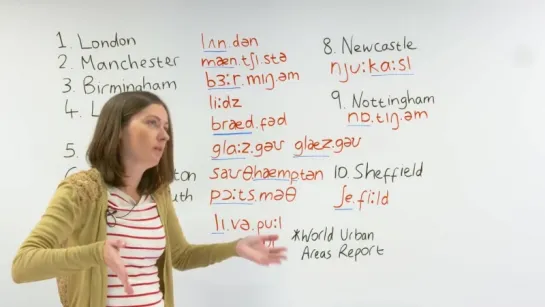 1. London lʌn.dən
2. Manchester mæn.tʃɪ.stə
3. Birmingham bɜːr.mɪŋ.əm
4. L liːdz
bræd.fəd
5. glɑːz.gəʊ glæz.gəʊ
ton saʊθhæmptən
uth pɔːts.məθ
lɪ.və.puːl
8. Newcastle
njuːkɑːsl
9. Nottingham
nɒ.tɪŋ.əm
10 Sheffield
ʃe.fiːld
*World Urban
Areas Report